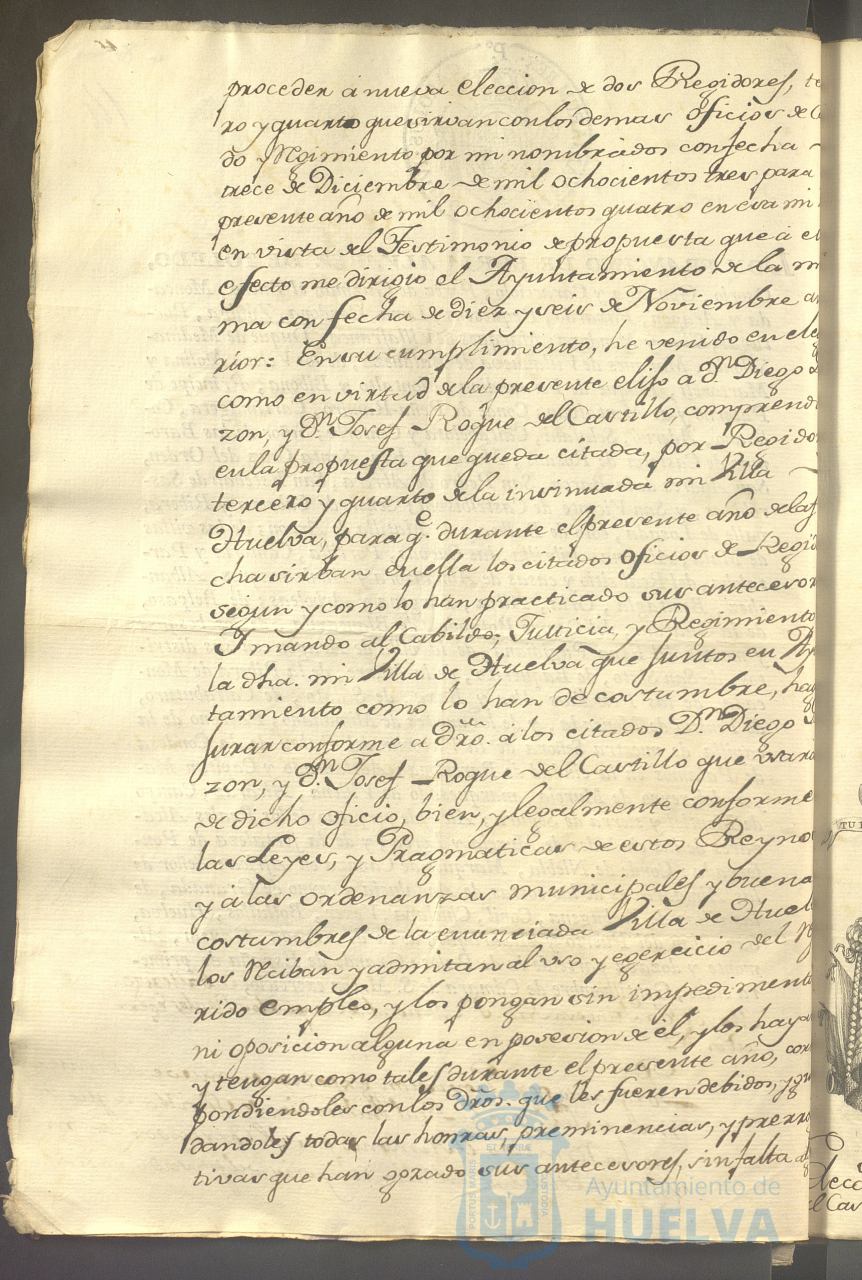 proceder á nueva eleccion de dos Regidores, te
ro y quarto que sirvan con los demas oficios de C
do y Regimiento por mi nombrados con fecha
trece de Diciembre de mil ochocientos tres para
presente año de mil ochocientos quatro en esa mi
en vista del Testimonio de propuesta que á e
efecto me dirigio el Ayuntamiento de la m
ma con fecha de diez y seis de Noviembre a
rior: En su cumplimiento, he venido en ele
como en virtud de la presente elijo a Dn Diego
zon, y Dn Josef Roque del Castillo, comprend
en la propuesta que queda citada, por Regido
tercero y quarto de la insinuada mi Villa
Huelva, para qe. durante el presente año de la f
cha sirban en ella los citados oficios de Regi
segun y como lo han practicado sus antecesor
Y mando al Cabildo, Justicia, y Regimiento
la dha. mi Villa de Huelva que juntos en Ay
tamiento como lo han de costumbre, ha
jurar conforme a dro. á los citados Dn Diego
zon, y Dn Josef Roque del Castillo que usara
de dicho oficio, bien, y legalmente conforme
las Leyes, y Pragmaticas de estos Reyno
y á las ordenanzas municipales y buena
costumbres de la enunciada Villa de Huel
los reciban y admitan al uso y egercicio del
rido empleo, y los pongan sin impediment
ni oposicion alguna en posesion de él, y los haya
y tengan como tales durante el presente año, cor
pondiendoles con los dros. que les fueren debidos, y gu
dandoles todas las honras, preminencias, y prerro
tivas que han gozado sus antecesores, sin falta al
Ayuntamiento de
HUELVA